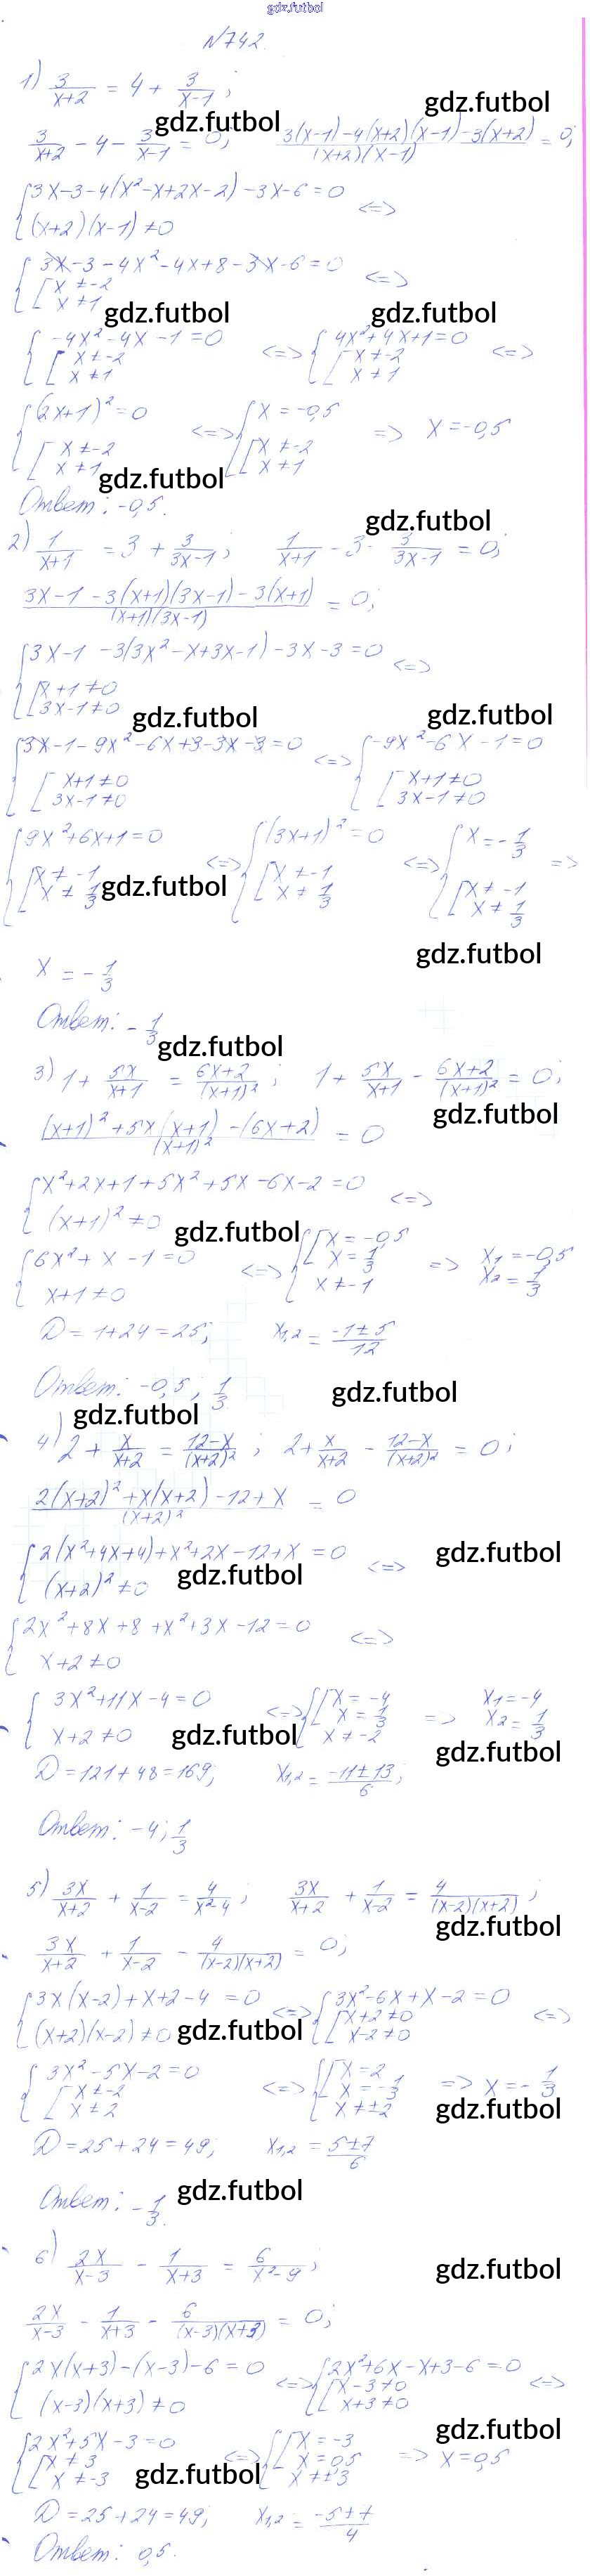 gdz.futbol
№742.
1) 3/(x+2) = 4 + 3/(x-1) ;
gdz.futbol
gdz.futbol
3/(x+2) - 4 - 3/(x-1) = 0; (3(x-1)-4(x+2)(x-1)-3(x+2))/((x+2)(x-1)) = 0;
{ 3x-3-4(x²-x+2x-2)-3x-6=0 <=>
(x+2)(x-1)≠0
{ 3x-3-4x²-4x+8-3x-6=0 <=>
[ x≠-2
x≠1
gdz.futbol gdz.futbol
{ -4x²-4x-1=0 <=> { 4x²+4x+1=0 <=>
[ x≠-2 [ x≠-2
x≠1 x≠1
{ (2x+1)²=0 <=> { x=-0,5 => x=-0,5
[ x≠-2 [ x≠-2
x≠1 x≠1
gdz.futbol
Ответ: -0,5.
gdz.futbol
2) 1/(x+1) = 3 + 3/(3x-1) ; 1/(x+1) - 3 - 3/(3x-1) = 0;
(3x-1-3(x+1)(3x-1)-3(x+1))/((x+1)(3x-1)) = 0;
{ 3x-1-3(3x²-x+3x-1)-3x-3=0 <=>
[ x+1≠0
3x-1≠0
gdz.futbol gdz.futbol
{ 3x-1-9x²-6x+3-3x-3=0 <=> { -9x²-6x-1=0
[ x+1≠0 [ x+1≠0
3x-1≠0 3x-1≠0
{ 9x²+6x+1=0 <=> { (3x+1)²=0 <=> { x=-1/3 =>
[ x≠-1 [ x≠-1 [ x≠-1
x≠1/3 x≠1/3 x≠1/3
gdz.futbol
gdz.futbol
x = -1/3
Ответ: -1/3
gdz.futbol
3) 1 + 5x/(x+1) = (6x+2)/(x+1)² ; 1 + 5x/(x+1) - (6x+2)/(x+1)² = 0;
gdz.futbol
((x+1)²+5x(x+1)-(6x+2))/(x+1)² = 0
{ x²+2x+1+5x²+5x-6x-2=0 <=>
(x+1)²≠0
gdz.futbol
{ 6x²+x-1=0 <=> { [ x=-0,5 => x₁=-0,5
x=1/3 x₂=1/3
x+1≠0 x≠-1
D=1+24=25; x₁,₂ = (-1±5)/12
Ответ: -0,5; 1/3.
gdz.futbol
gdz.futbol
4) 2 + x/(x+2) = (12-x)/(x+2)² ; 2 + x/(x+2) - (12-x)/(x+2)² = 0;
(2(x+2)²+x(x+2)-12+x)/(x+2)² = 0
gdz.futbol
{ 2(x²+4x+4)+x²+2x-12+x=0 <=>
(x+2)²≠0
gdz.futbol
{ 2x²+8x+8+x²+3x-12=0 <=>
x+2≠0
{ 3x²+11x-4=0 <=> { [ x=-4 => x₁=-4
x=1/3 x₂=1/3
x+2≠0 x≠-2
gdz.futbol
gdz.futbol
D=121+48=169; x₁,₂=(-11±13)/6;
Ответ: -4; 1/3
5) 3x/(x+2) + 1/(x-2) = 4/(x²-4) ; 3x/(x+2) + 1/(x-2) = 4/((x-2)(x+2)) ;
gdz.futbol
3x/(x+2) + 1/(x-2) - 4/((x-2)(x+2)) = 0;
{ 3x(x-2)+x+2-4=0 <=> { 3x²-6x+x-2=0 <=>
[ x+2≠0
(x+2)(x-2)≠0 x-2≠0
gdz.futbol
{ 3x²-5x-2=0 <=> { [ x=2 => x=-1/3
[ x≠-2 x=-1/3
x≠2 x≠±2
gdz.futbol
D=25+24=49; x₁,₂=(5±7)/6
gdz.futbol
Ответ: -1/3.
6) 2x/(x-3) - 1/(x+3) = 6/(x²-9) ;
gdz.futbol
2x/(x-3) - 1/(x+3) - 6/((x-3)(x+3)) = 0;
{ 2x(x+3)-(x-3)-6=0 <=> { 2x²+6x-x+3-6=0 <=>
[ x-3≠0
(x-3)(x+3)≠0 x+3≠0
gdz.futbol
{ 2x²+5x-3=0 <=> { [ x=-3 => x=0,5
[ x≠3 x=0,5
x≠-3 x≠±3
gdz.futbol
D=25+24=49; x₁,₂=(-5±7)/4
Ответ: 0,5.